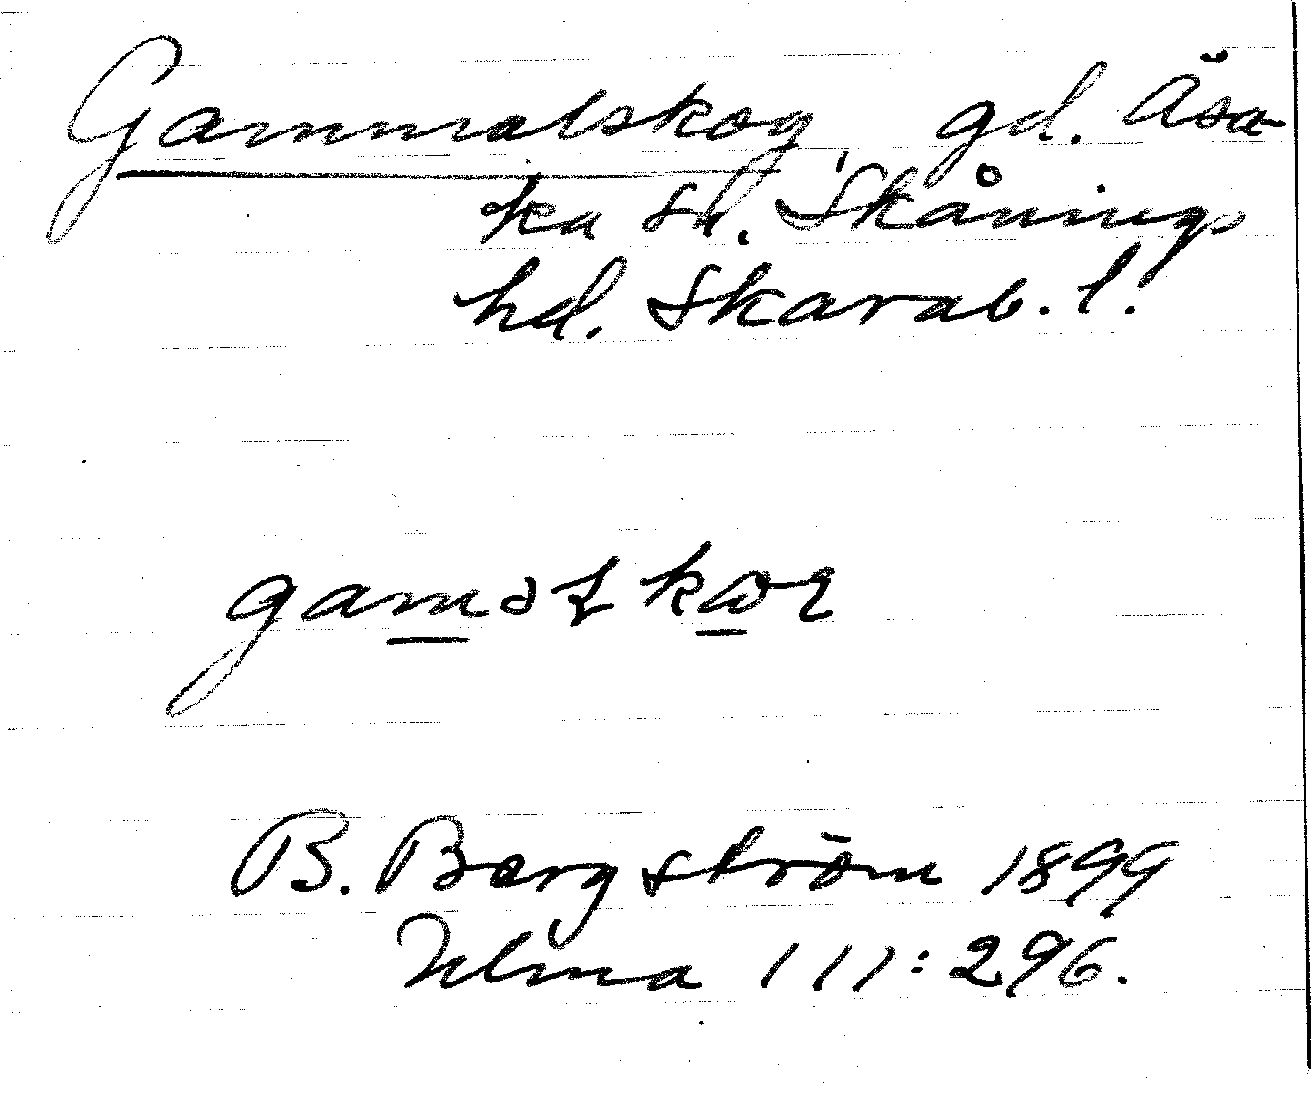 Gammalskog, gd. Åsa-
ka sn. Skånings
hd. Skarab. l.
B. Bergström 1899
Ulma 111:296.